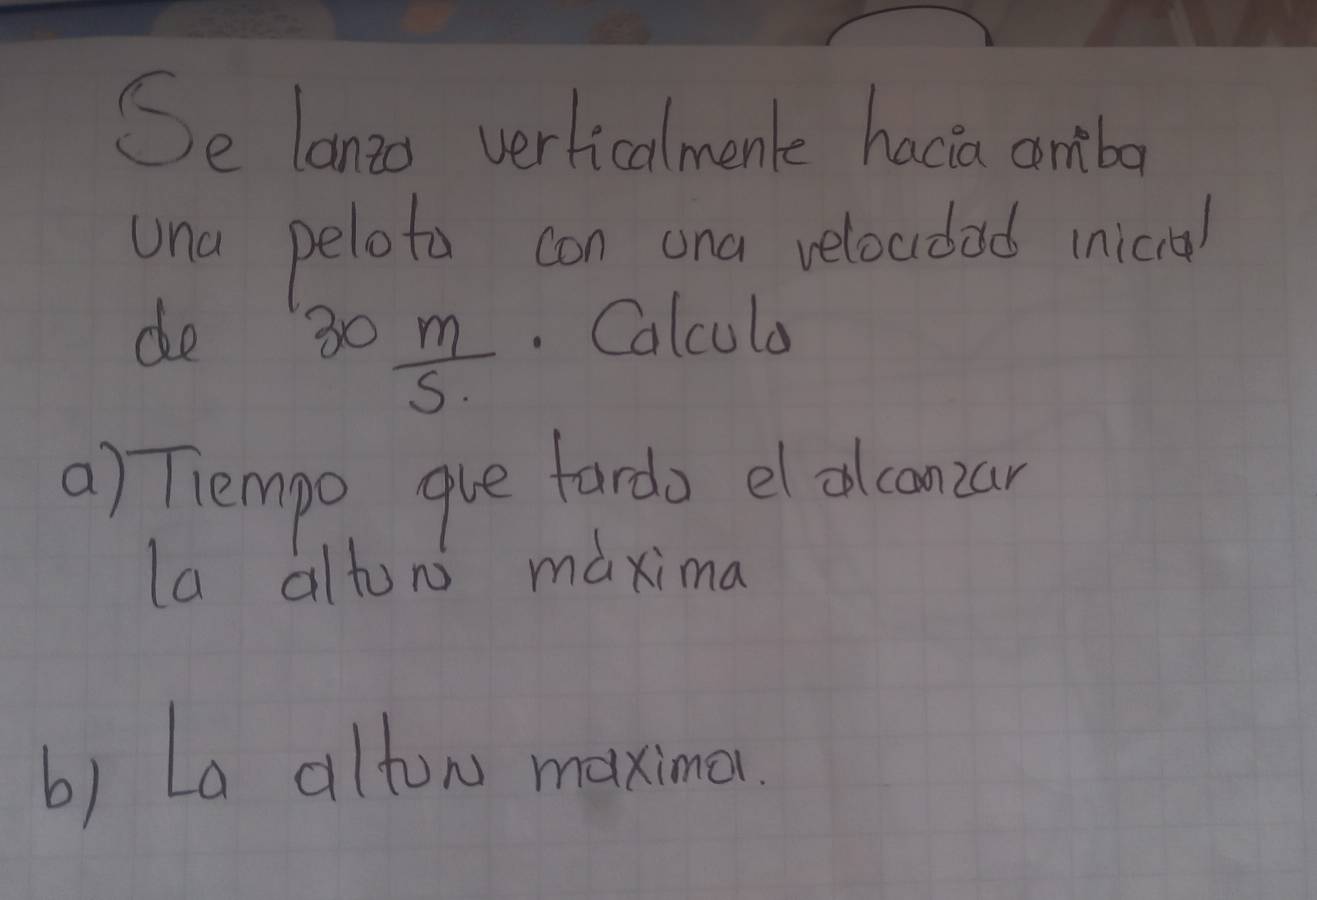 Se lanza verticalmente hacia arriba
una pelota con una velocidad inicial
de 30 m/s. Calcula
a) Tiempo que tarda el alcanzar
la altura máxima
b) La altura maxima.